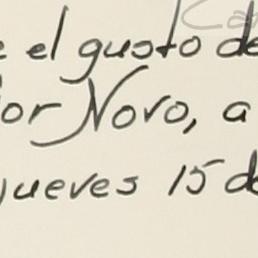 e el gusto de
or Novo, a
jueves 15 de